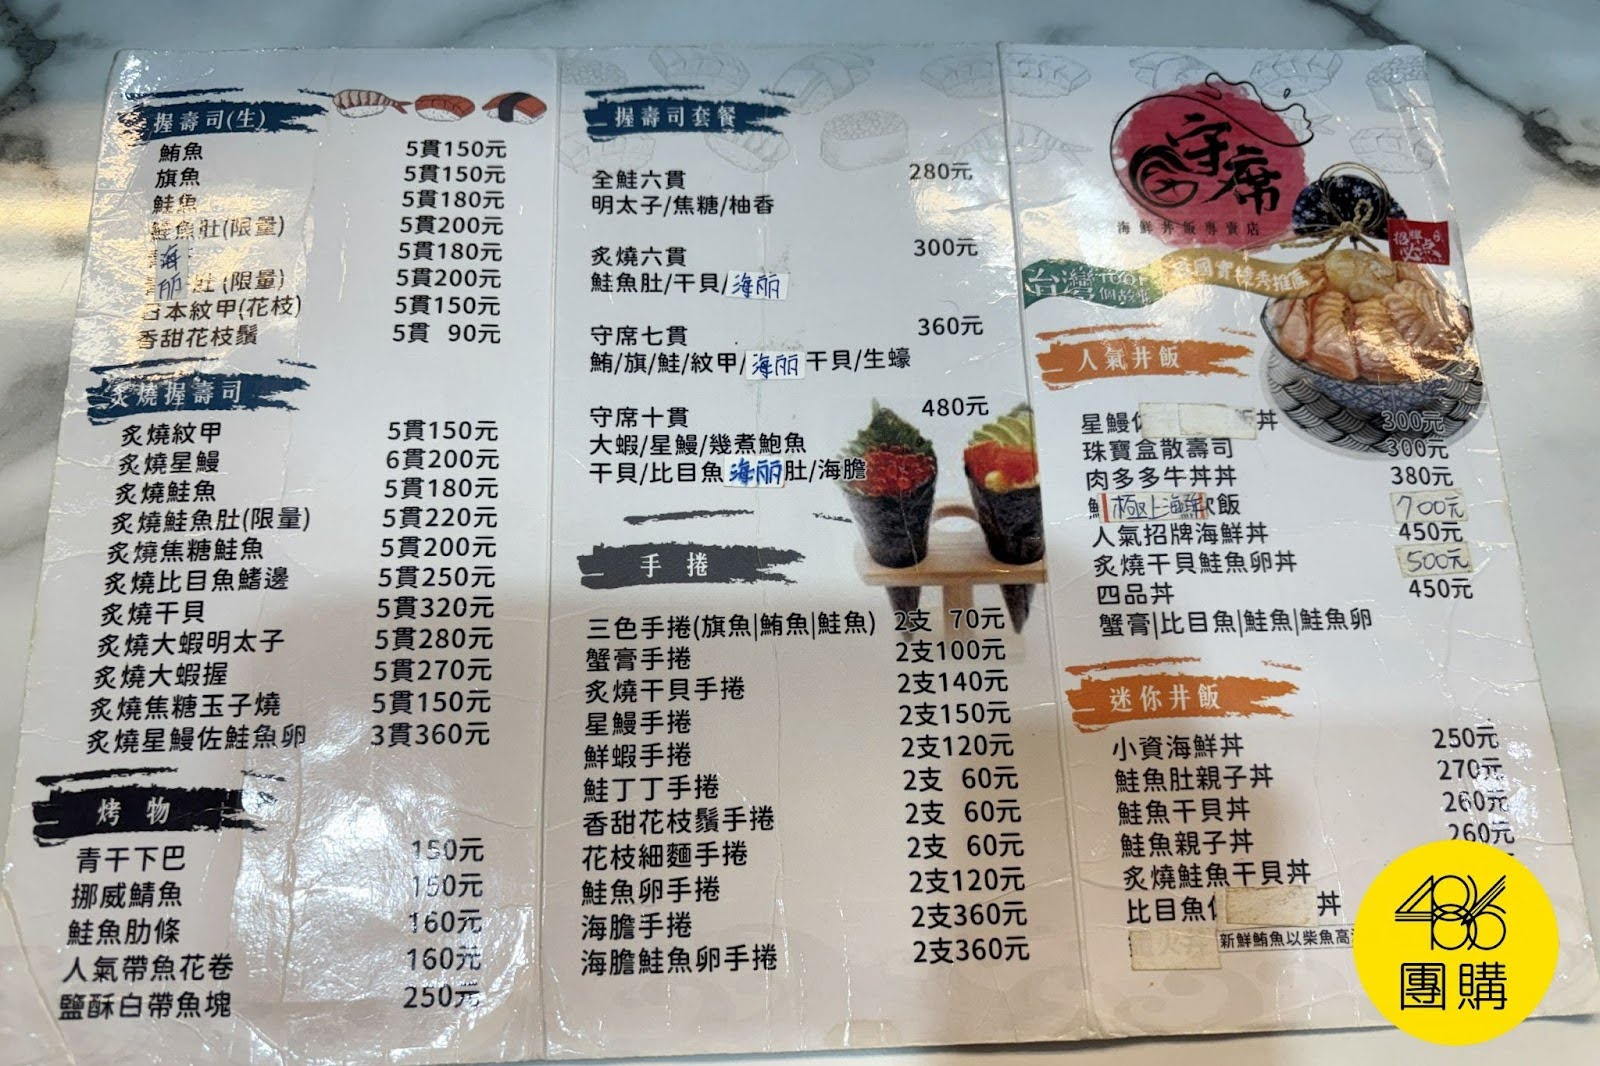 握壽司(生)
鮪魚 5貫150元
旗魚 5貫150元
鮭魚 5貫180元
鮭魚肚(限量) 5貫200元
海 5貫180元
丽 肚(限量) 5貫200元
日本紋甲(花枝) 5貫150元
香甜花枝鬚 5貫 90元
炙燒握壽司
炙燒紋甲 5貫150元
炙燒星鰻 6貫200元
炙燒鮭魚 5貫180元
炙燒鮭魚肚(限量) 5貫220元
炙燒焦糖鮭魚 5貫200元
炙燒比目魚鰭邊 5貫250元
炙燒干貝 5貫320元
炙燒大蝦明太子 5貫280元
炙燒大蝦握 5貫270元
炙燒焦糖玉子燒 5貫150元
炙燒星鰻佐鮭魚卵 3貫360元
烤物
青干下巴 150元
挪威鯖魚 150元
鮭魚肋條 160元
人氣帶魚花卷 160元
鹽酥白帶魚塊 250元
握壽司套餐
全鮭六貫 280元
明太子/焦糖/柚香
炙燒六貫 300元
鮭魚肚/干貝/海丽
守席七貫 360元
鮪/旗/鮭/紋甲/海丽干貝/生蠔
守席十貫 480元
大蝦/星鰻/幾煮鮑魚
干貝/比目魚海丽肚/海膽
手捲
三色手捲(旗魚|鮪魚|鮭魚) 2支 70元
蟹膏手捲 2支100元
炙燒干貝手捲 2支140元
星鰻手捲 2支150元
鮮蝦手捲 2支120元
鮭丁丁手捲 2支 60元
香甜花枝鬚手捲 2支 60元
花枝細麵手捲 2支 60元
鮭魚卵手捲 2支120元
海膽手捲 2支360元
海膽鮭魚卵手捲 2支360元
守席
海鮮丼飯專賣店
招牌必点
台灣1001個故事
國寶 優秀推薦
人氣丼飯
星鰻 丼 300元
珠寶盒散壽司 300元
肉多多牛丼丼 380元
極上海鮮 飯 700元
人氣招牌海鮮丼 450元
炙燒干貝鮭魚卵丼 500元
四品丼 450元
蟹膏|比目魚|鮭魚|鮭魚卵
迷你丼飯
小資海鮮丼 250元
鮭魚肚親子丼 270元
鮭魚干貝丼 260元
鮭魚親子丼 260元
炙燒鮭魚干貝丼
比目魚 丼
新鮮鮪魚以柴魚高
486
團購